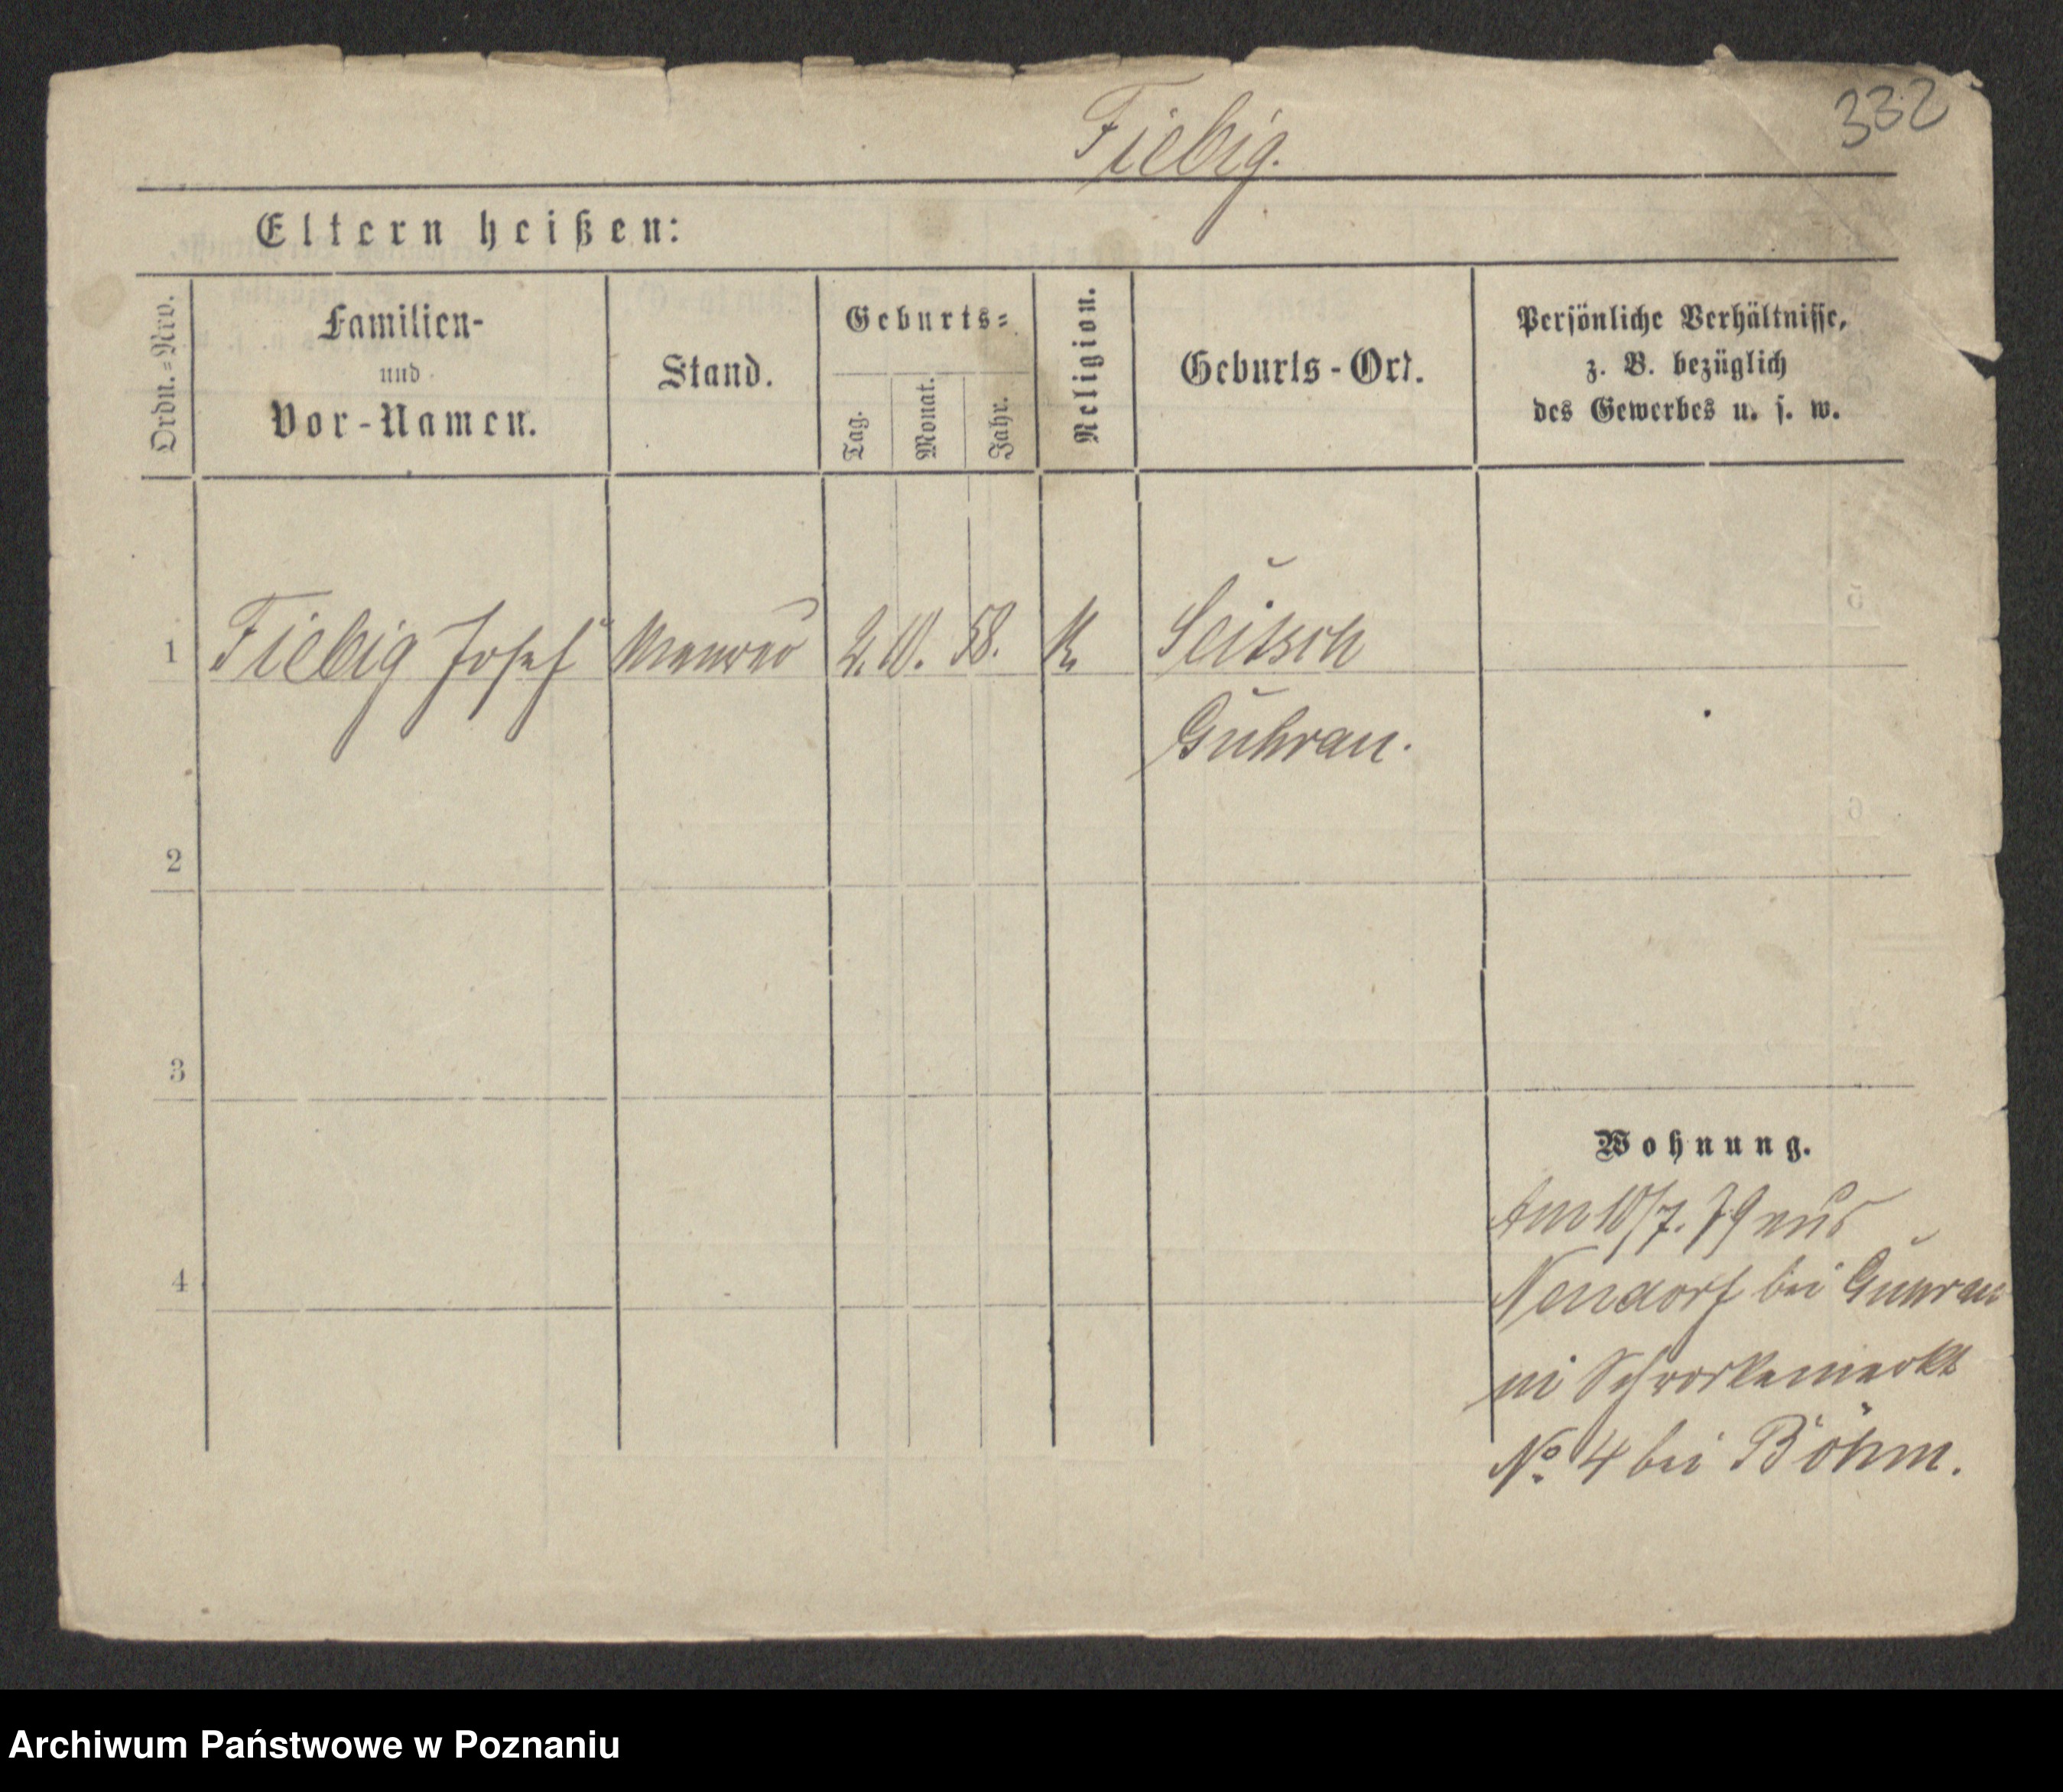 332
Fiebig.
Eltern heißen:
Ordn.=Nro.
Familien-
und
Vor-Namen.
Stand.
Geburts=
Tag.
Monat.
Jahr.
Religion.
Geburts-Ort.
Persönliche Verhältnisse,
z. B. bezüglich
des Gewerbes u. s. w.
1 Fiebig Josef Maurer 2. 10. 58. K. Seitsch
Guhrau.
2
3
4
Wohnung.
Am 10/7. 79 aus
Neudorf bei Guhrau
No. 4 bei Böhm.
Archiwum Państwowe w Poznaniu